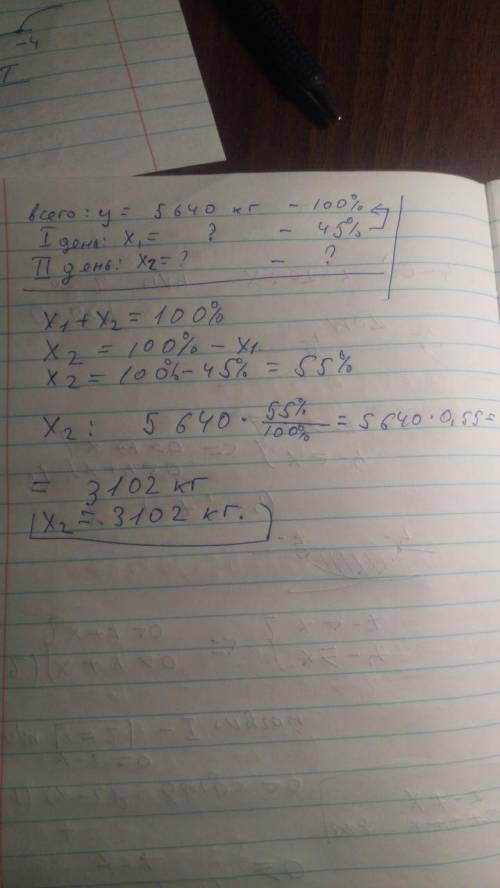 -4
I
всего: y = 5640 кг - 100%
I день: x₁ = ? - 45%
II день: x₂ = ? - ?
x₁ + x₂ = 100%
x₂ = 100% - x₁
x₂ = 100% - 45% = 55%
x₂: 5 640 · 55%/100% = 5640 · 0,55 =
= 3102 кг
x₂ = 3102 кг.